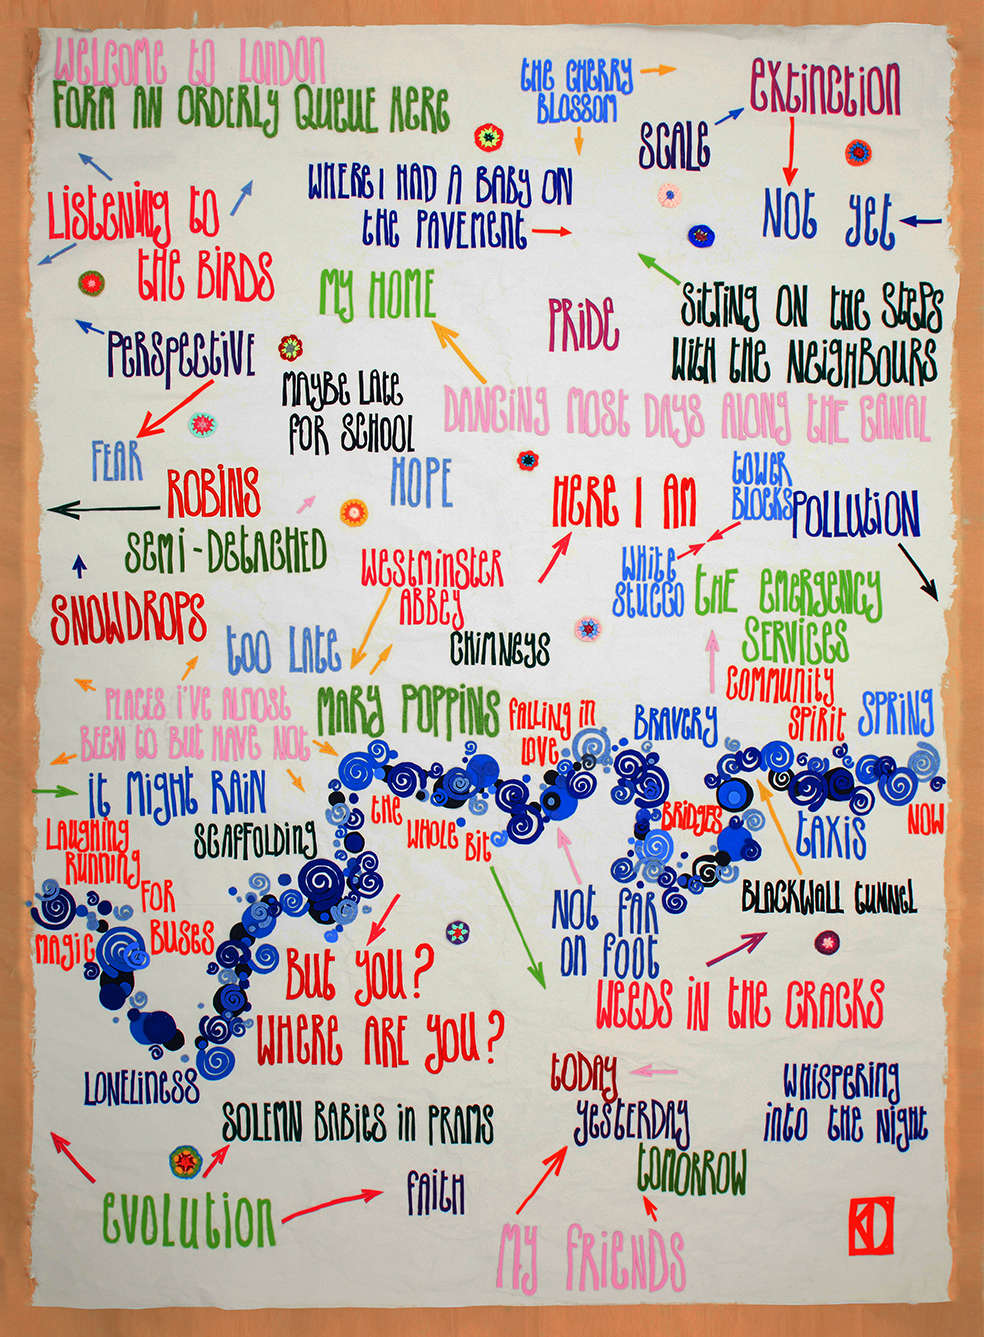 WELCOME TO LONDON
FORM AN ORDERLY QUEUE HERE
THE CHERRY
BLOSSOM
EXTINCTION
SCALE
WHERE I HAD A BABY ON
THE PAVEMENT
NOT YET
LISTENING TO
THE BIRDS
MY HOME
PRIDE
SITTING ON THE STEPS
WITH THE NEIGHBOURS
PERSPECTIVE
MAYBE LATE
FOR SCHOOL
DANCING MOST DAYS ALONG THE CANAL
FEAR
HOPE
ROBINS
HERE I AM
TOWER
BLOCKS
POLLUTION
SEMI-DETACHED
WESTMINSTER
ABBEY
WHITE
STUCCO
THE EMERGENCY
SERVICES
SNOWDROPS
TOO LATE
CHIMNEYS
COMMUNITY
SPIRIT
PLACES I'VE ALMOST
BEEN TO BUT HAVE NOT
MARY POPPINS
FALLING IN
LOVE
BRAVERY
SPRING
IT MIGHT RAIN
THE
WHOLE BIT
BRIDGES
TAXIS
NOW
LAUGHING
RUNNING
FOR
BUSES
SCAFFOLDING
MAGIC
NOT FAR
ON FOOT
BLACKWALL TUNNEL
BUT YOU?
WHERE ARE YOU?
WEEDS IN THE CRACKS
LONELINESS
TODAY
YESTERDAY
TOMORROW
WHISPERING
INTO THE NIGHT
SOLEMN BABIES IN PRAMS
EVOLUTION
FAITH
MY FRIENDS
KD